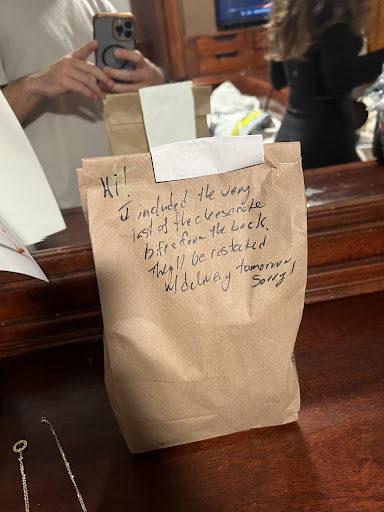 Hi!
I included the very
last of the cheesecake
bites from the back.
They'll be restocked
w/ delivery tomorrow
Sorry!